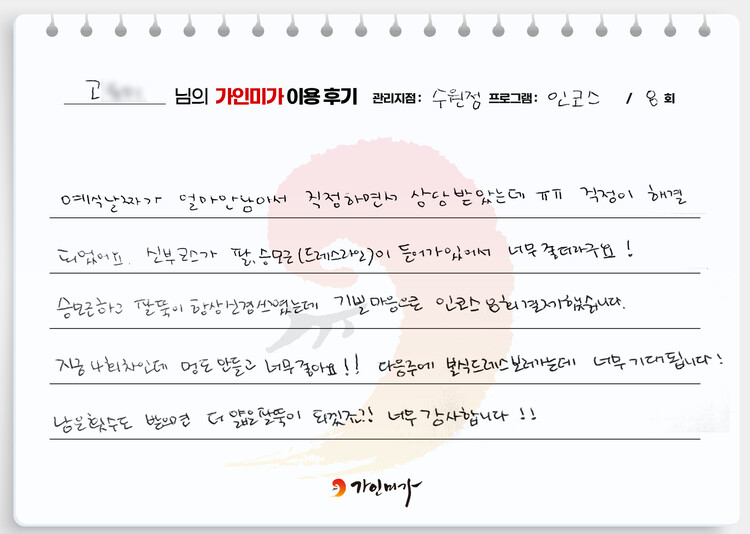 고 님의 가인미가 이용 후기 관리지점: 수원점 프로그램: 인코스 / 8 회
예식날짜가 얼마안남아서 걱정하면서 상담받았는데 ㅠㅠ 걱정이 해결
되었어요. 신부코스가 팔, 승모근(드레스라인)이 들어가있어서 너무좋더라구요!
승모근하고 팔뚝이 항상신경쓰였는데 기쁠마음으로 인코스 8회결제했습니다.
지금 4회차인데 멍도 안들고 너무좋아요!! 다음주에 본식드레스보러가는데 너무기대됩니다!
남은횟수도 받으면 더 얇은팔뚝이 되겠죠?! 너무 감사합니다 !!
가인미가